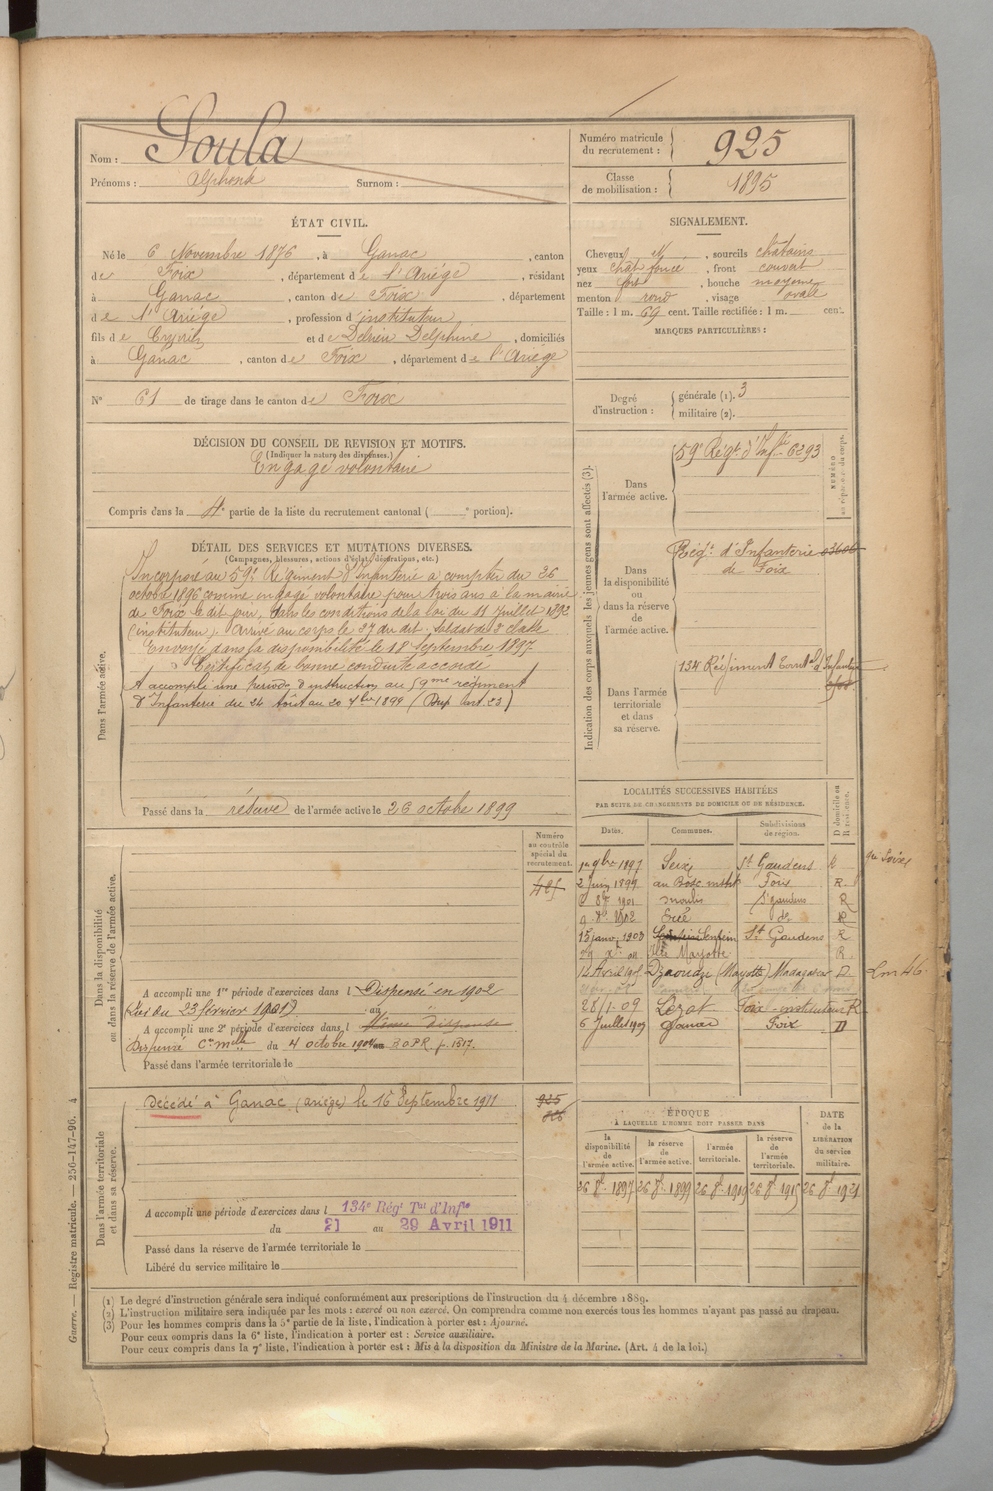 Nom : Soula
Prénoms : Alphonse Surnom :
Numéro matricule du recrutement : 925
Classe de mobilisation : 1895
ÉTAT CIVIL.
Né le 6 Novembre 1876, à Ganac, canton
de Foix, département de l'Ariège, résidant
à Ganac, canton de Foix, département
de l'Ariège, profession d'instituteur
fils de et de Delrieu Delphine, domiciliés
à Ganac, canton de Foix, département de l'Ariège
N° 61 de tirage dans le canton de Foix
SIGNALEMENT.
Cheveux et, sourcils châtains
yeux chât foncé, front couvert
nez fort, bouche moyenne
menton rond, visage ovale
Taille : 1 m. 69 cent. Taille rectifiée : 1 m. cent.
MARQUES PARTICULIÈRES :
Degré d'instruction : générale (1). 3
militaire (2).
DÉCISION DU CONSEIL DE REVISION ET MOTIFS.
(Indiquer la nature des dispenses.)
Engagé volontaire
Compris dans la 4e partie de la liste du recrutement cantonal ( e portion).
DÉTAIL DES SERVICES ET MUTATIONS DIVERSES.
(Campagnes, blessures, actions d'éclat, décorations, etc.)
Dans l'armée active.
Incorporé au 59e Régiment d'Infanterie à compter du 26
octobre 1896 comme engagé volontaire pour trois ans à la mairie
de Foix le dit jour, dans les conditions de la loi du 11 Juillet 1892
(instituteur). Arrivé au corps le 27 du dit. Soldat de 2e classe
Envoyé dans la disponibilité le 18 Septembre 1897.
Certificat de bonne conduite accordé
A accompli une période d'instruction au 59me régiment
d'Infanterie du 24 Août au 20 7bre 1899 (Disp art. 23)
Passé dans la réserve de l'armée active le 26 octobre 1899
Indication des corps auxquels les jeunes gens sont affectés (3).
NUMÉRO au répertoire du corps.
Dans l'armée active.
59e Régt d'Infie 6293
Dans la disponibilité ou dans la réserve de l'armée active.
Régt d'Infanterie
de Foix
Dans l'armée territoriale et dans sa réserve.
134 Régiment Territal d'Infanterie
Dans la disponibilité ou dans la réserve de l'armée active.
Numéro au contrôle spécial du recrutement.
A accompli une 1re période d'exercices dans l Dispensé en 1902
au
A accompli une 2e période d'exercices dans l
Dispensé Cre mlle du 4 octobre 1904 au B.O.P.R. p. 1317.
Passé dans l'armée territoriale le
LOCALITÉS SUCCESSIVES HABITÉES
PAR SUITE DE CHANGEMENTS DE DOMICILE OU DE RÉSIDENCE.
Dates. Communes. Subdivisions de région. D domicile ou R résidence.
1er 9bre 1897 Seix St Gaudens R
2 Juin 1899 au Bosc instit Foix R.
1901 Moulis St gaudens R
1902 Ercé do R
15 janv. 1903 Sentein St Gaudens R
Mayotte R.
14 Avril Dzaoudzi (Mayotte) Madagascar D Lm 46.
28/1.09 Lézat Foix - instituteur R
6 Juillet 1909 Ganac Foix D
Dans l'armée territoriale et dans sa réserve.
Décédé à Ganac (Ariège) le 16 Septembre 1911
925
A accompli une période d'exercices dans l 134e Régt Tal d'Infie
du 21 au 29 Avril 1911
Passé dans la réserve de l'armée territoriale le
Libéré du service militaire le
ÉPOQUE
À LAQUELLE L'HOMME DOIT PASSER DANS
la disponibilité de l'armée active. la réserve de l'armée active. l'armée territoriale. la réserve de l'armée territoriale. DATE de la LIBÉRATION du service militaire.
26 8e 1897 26 8e 1899 26 8e 1909 26 8e 1915 26 8e 1921
(1) Le degré d'instruction générale sera indiqué conformément aux prescriptions de l'instruction du 4 décembre 1889.
(2) L'instruction militaire sera indiquée par les mots : exercé ou non exercé. On comprendra comme non exercés tous les hommes n'ayant pas passé au drapeau.
(3) Pour les hommes compris dans la 5e partie de la liste, l'indication à porter est : Ajourné.
Pour ceux compris dans la 6e liste, l'indication à porter est : Service auxiliaire.
Pour ceux compris dans la 7e liste, l'indication à porter est : Mis à la disposition du Ministre de la Marine. (Art. 4 de la loi.)
Guerre. — Registre matricule. — 256-147-96. 4